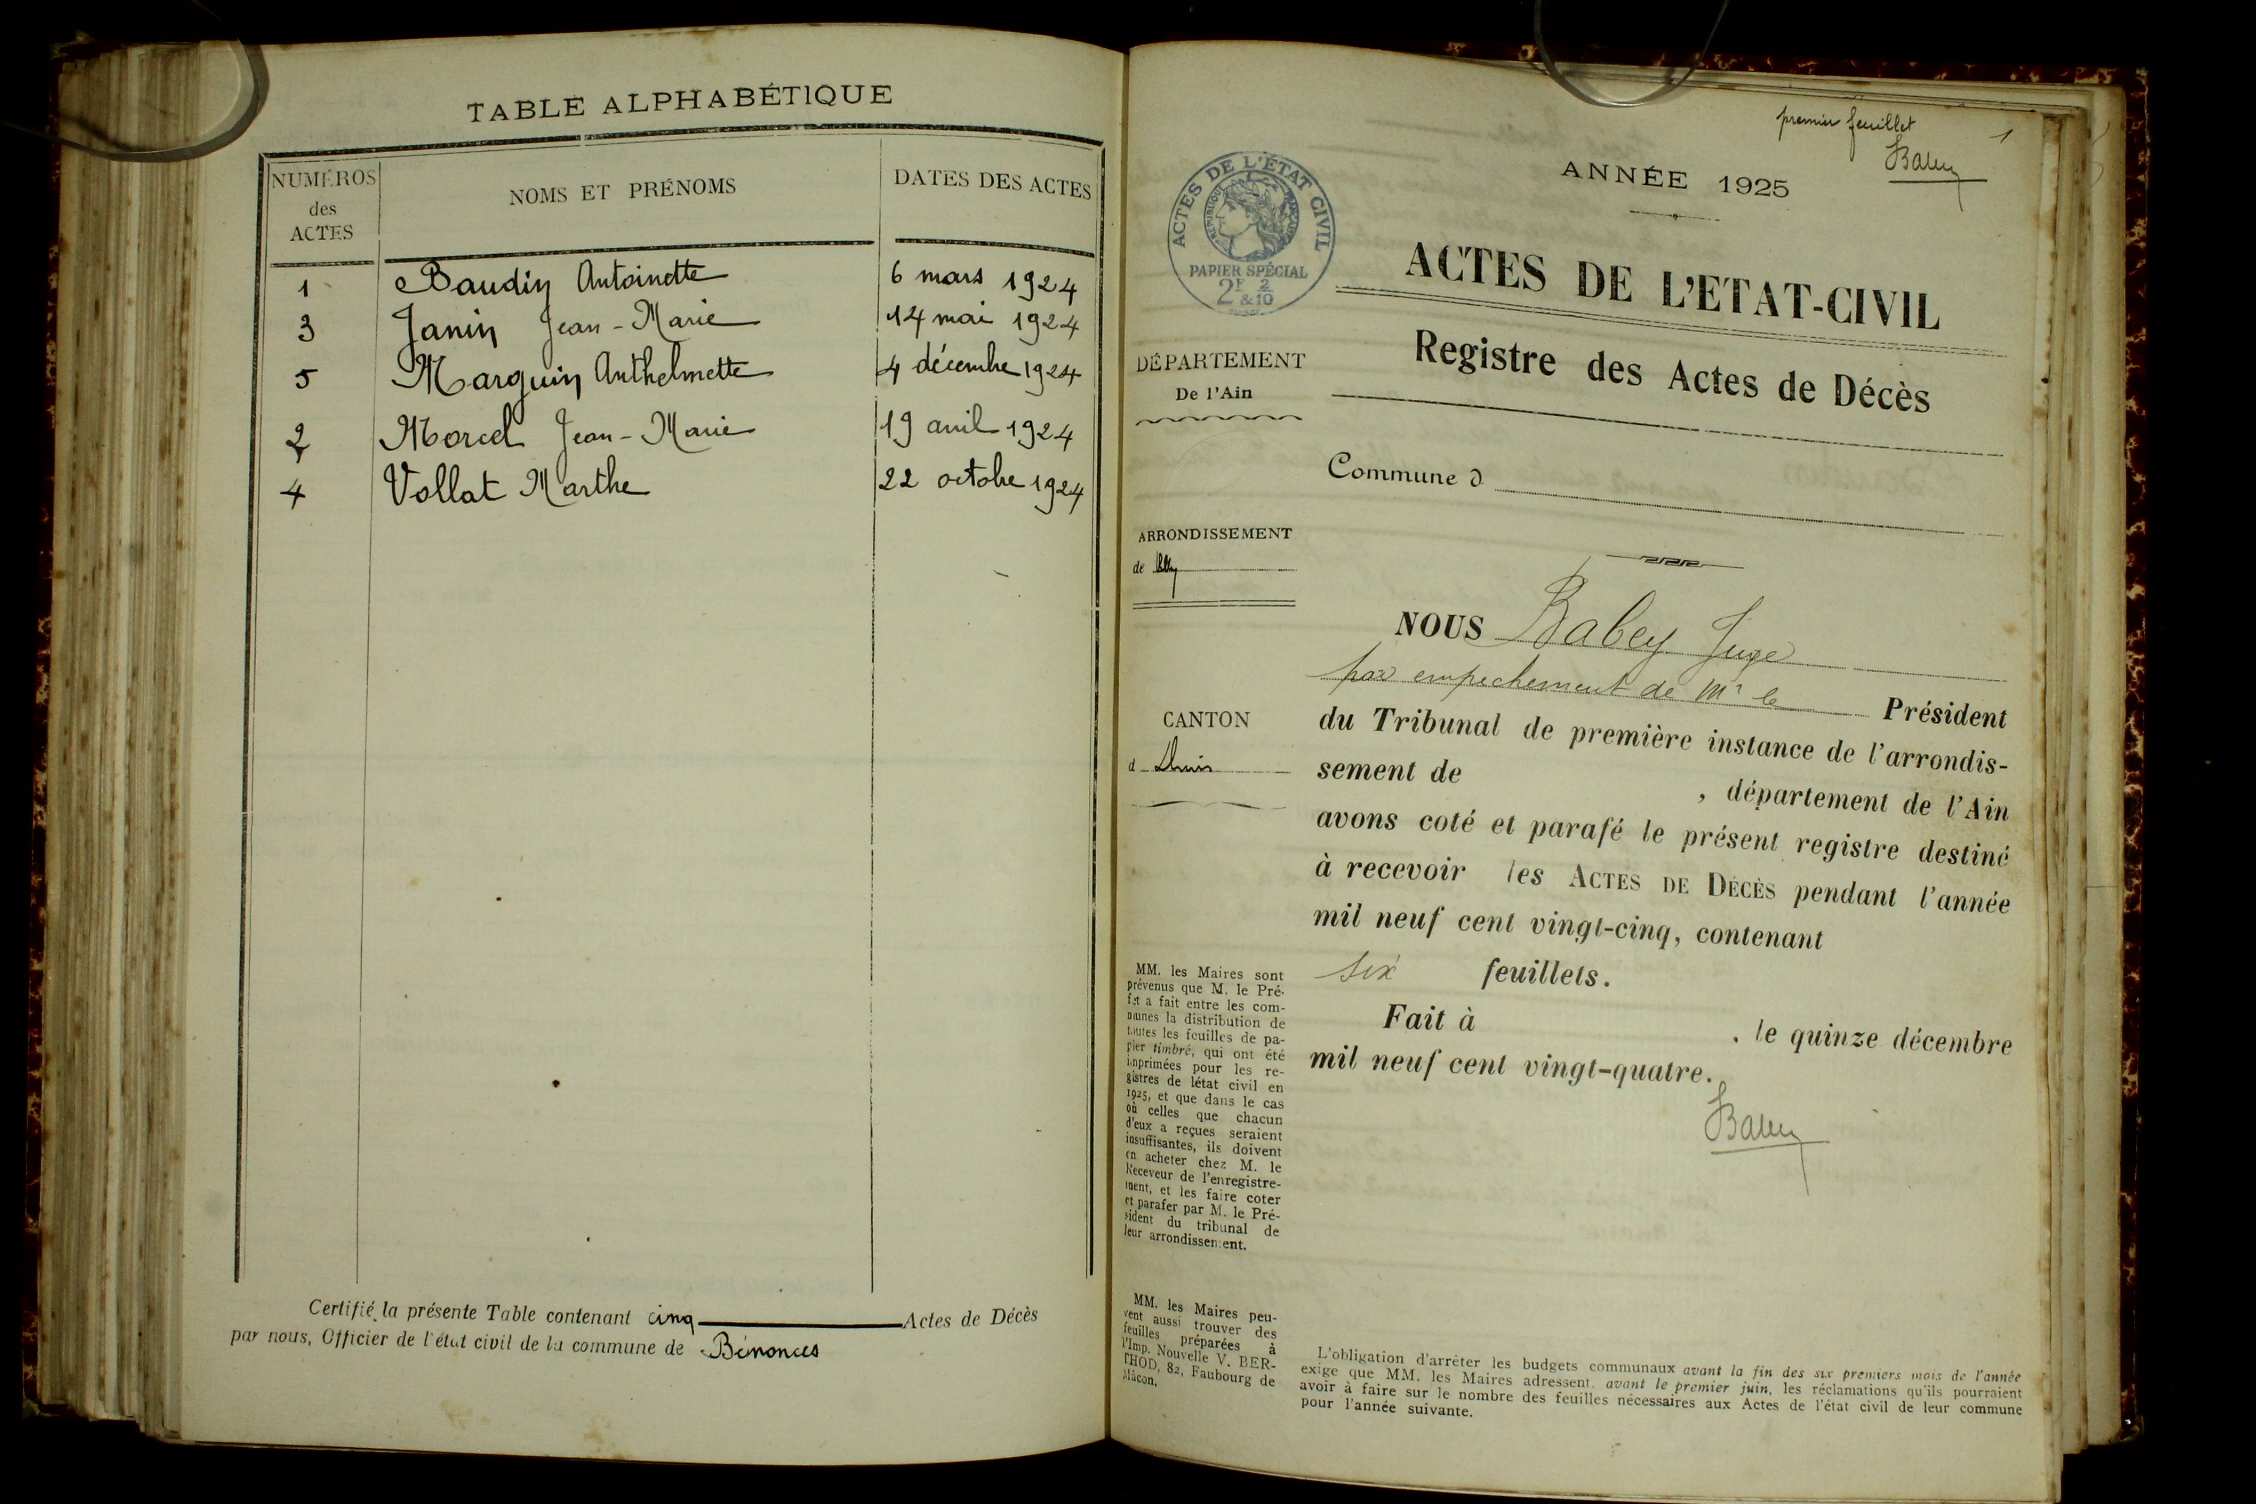 TABLE ALPHABÉTIQUE
NUMÉROS
des
ACTES
NOMS ET PRÉNOMS
DATES DES ACTES
1 Baudin Antoinette 6 mars 1924
3 Janin Jean-Marie 14 mai 1924
5 Marguin Anthelmette 4 décembre 1924
2 Morcel Jean-Marie 19 avril 1924
4 Vollat Marthe 22 octobre 1924
Certifié la présente Table contenant cinq Actes de Décès
par nous, Officier de l'état civil de la commune de Bénonces
premier feuillet 1
Babey
ANNÉE 1925
ACTES DE L'ÉTAT CIVIL
RÉPUBLIQUE FRANÇAISE
PAPIER SPÉCIAL
2F 2
&10
ACTES DE L'ETAT-CIVIL
Registre des Actes de Décès
DÉPARTEMENT
De l'Ain
Commune d
ARRONDISSEMENT
de Belley
CANTON
d Lhuis
NOUS Babey Juge
par empechement de Mr le Président
du Tribunal de première instance de l'arrondis-
sement de , département de l'Ain
avons coté et parafé le présent registre destiné
à recevoir les ACTES DE DÉCÈS pendant l'année
mil neuf cent vingt-cinq, contenant
six feuillets.
Fait à , le quinze décembre
mil neuf cent vingt-quatre.
Babey
MM. les Maires sont
prévenus que M. le Pré-
fet a fait entre les com-
munes la distribution de
toutes les feuilles de pa-
pier timbré, qui ont été
imprimées pour les re-
gistres de létat civil en
1925, et que dans le cas
où celles que chacun
d'eux a reçues seraient
insuffisantes, ils doivent
en acheter chez M. le
Receveur de l'enregistre-
ment, et les faire coter
et parafer par M. le Pré-
sident du tribunal de
leur arrondissement.
MM. les Maires peu-
vent aussi trouver des
feuilles préparées à
l'Imp. Nouvelle V. BER-
THOD, 82, Faubourg de
Mâcon.
L'obligation d'arrêter les budgets communaux avant la fin des six premiers mois de l'année
exige que MM. les Maires adressent, avant le premier juin, les réclamations qu'ils pourraient
avoir à faire sur le nombre des feuilles nécessaires aux Actes de l'état civil de leur commune
pour l'année suivante.